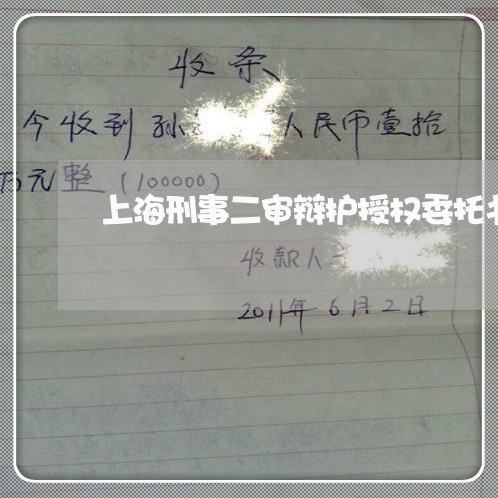 收条
今收到孙 人民币壹拾
万元整（100000）
上海刑事二审辩护授权委托
收款人
2011年6月2日